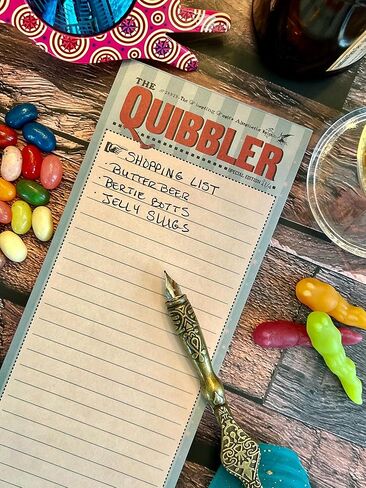 THE
QUIBBLER
SPECIAL EDITION
SHOPPING LIST
· BUTTERBEER
· BERTIE BOTTS
· JELLY SLUGS